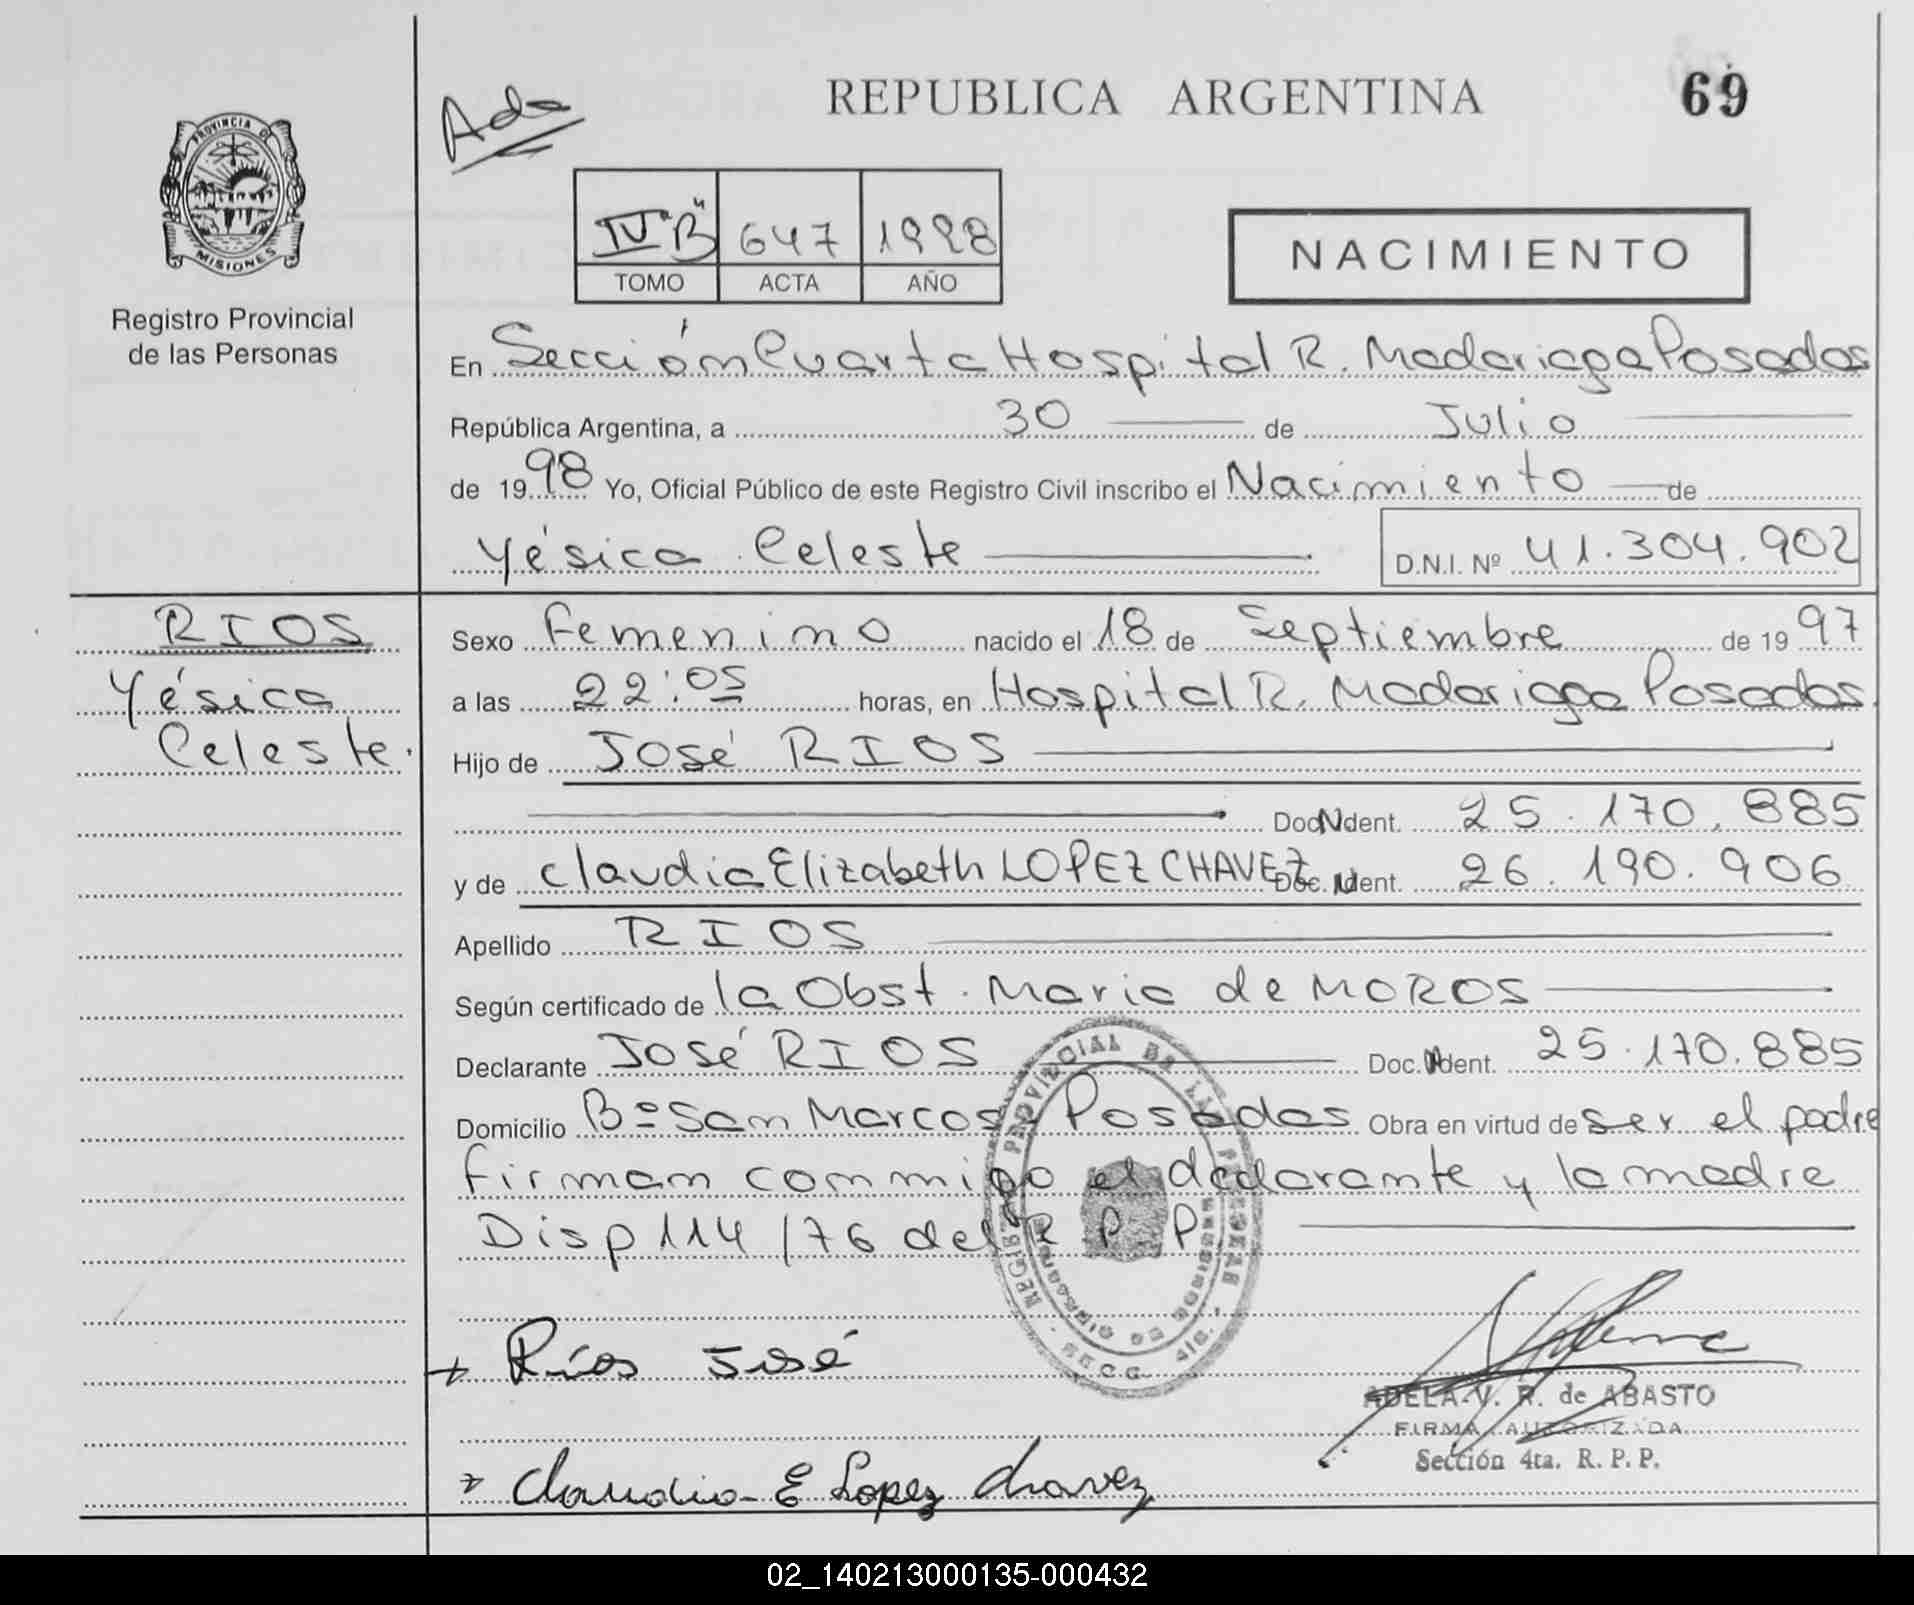 REPUBLICA ARGENTINA
69
Ada
PROVINCIA D
MISIONES
Registro Provincial
de las Personas
IV "B" 647 1998
TOMO ACTA AÑO
NACIMIENTO
En Sección Cuarta Hospital R. Madariaga Posadas
República Argentina, a 30 de Julio
de 1998 Yo, Oficial Público de este Registro Civil inscribo el Nacimiento de
Yésica Celeste D.N.I. Nº 41.304.902
RIOS
Yésica
Celeste.
Sexo Femenino nacido el 18 de Septiembre de 1997
a las 22:05 horas, en Hospital R. Madariaga Posadas.
Hijo de José RIOS
Doc. Ident. 25.170.885
y de Claudia Elizabeth LOPEZ CHAVEZ Doc. Ident. 26.190.906
Apellido RIOS
Según certificado de la Obst. Maria de MOROS
Declarante José RIOS Doc. Ident. 25.170.885
Domicilio Bº San Marcos Posadas Obra en virtud de ser el padre
firman conmigo el declarante y la madre
Disp 114/76 del R.P.P.
REGISTRO PROVINCIAL DE LAS PERSONAS
SECC. 4ta.
Ríos José
ADELA V. R. de ABASTO
FIRMA AUTORIZADA
Sección 4ta. R. P. P.
Claudia E Lopez Chavez
02_140213000135-000432